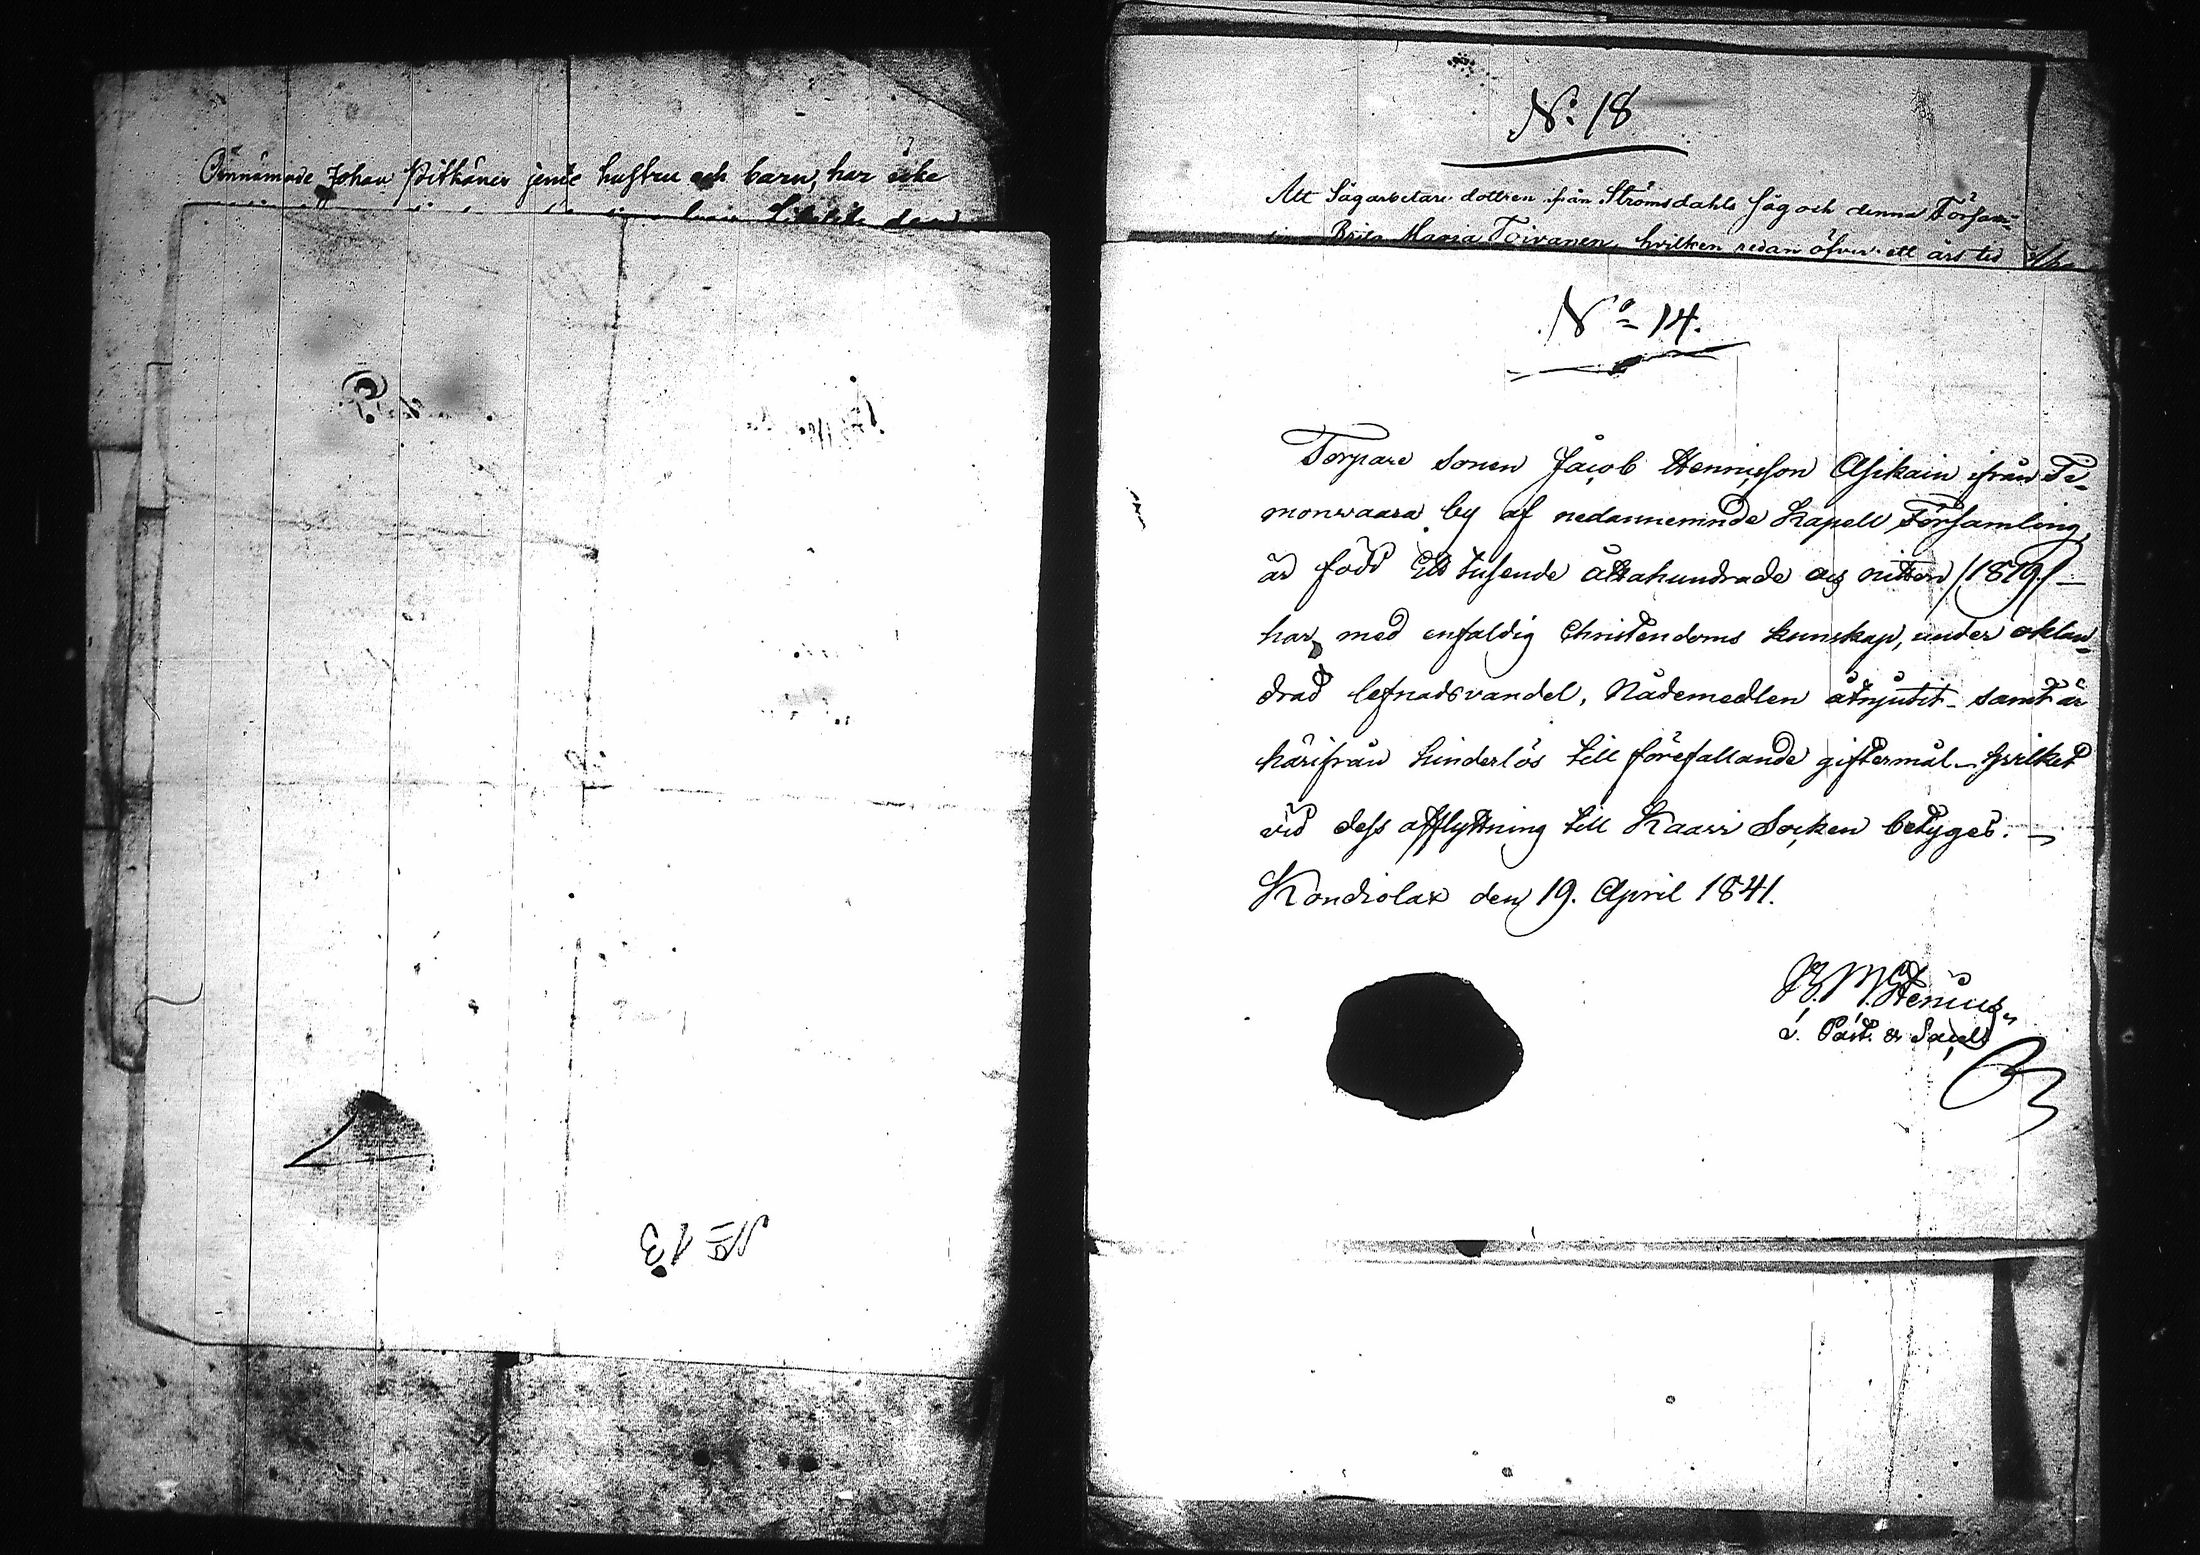 Omnämnde Johan Pitkänen jemte hustru och barn, har icke
No 13
No 18
Att Sågarbetare dottren från Strömsdahls Såg och denna Försam-
Brita Maria Toivanen, hvilken redan öfver ett års tid
No 14.
Torpare sonen Jacob Henricsson Asikain ifrån Te-
monwaara by af nedannemnde Kapell Församling,
är född Ett tusende åttahundrade och nitton /1819/ —
har med enfaldig Christendoms kunskap, under oklan-
drad lefnadsvandel, Nådemedlen åtnjutit samt är
härifrån hinderlös till förefallande giftermål — hvilket
vid dess afflyttning till Kaavi Socken betyges. —
Kondiolax den 19. April 1841.
Stenius.
v. Past. & Sacell